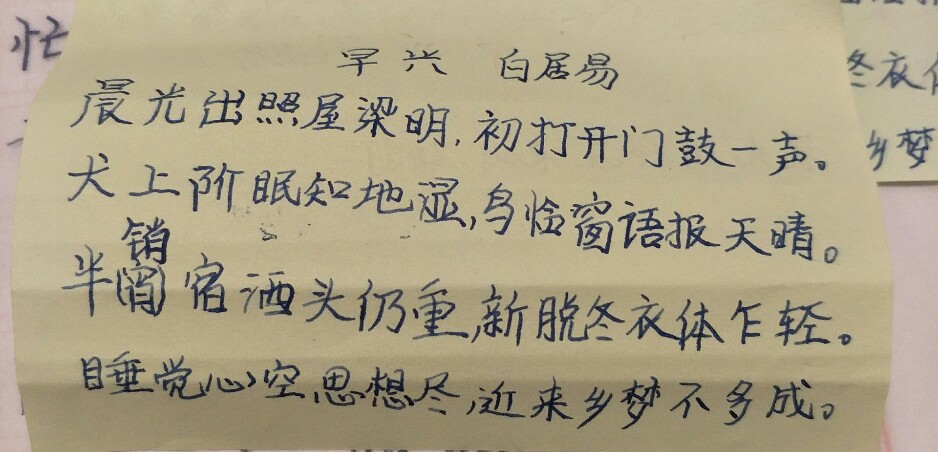 忙
早兴 白居易
晨光出照屋梁明,初打开门鼓一声。
犬上阶眠知地湿,鸟临窗语报天晴。
半销宿酒头仍重,新脱冬衣体乍轻。
睡觉心空思想尽,近来乡梦不多成。
冬衣
乡梦